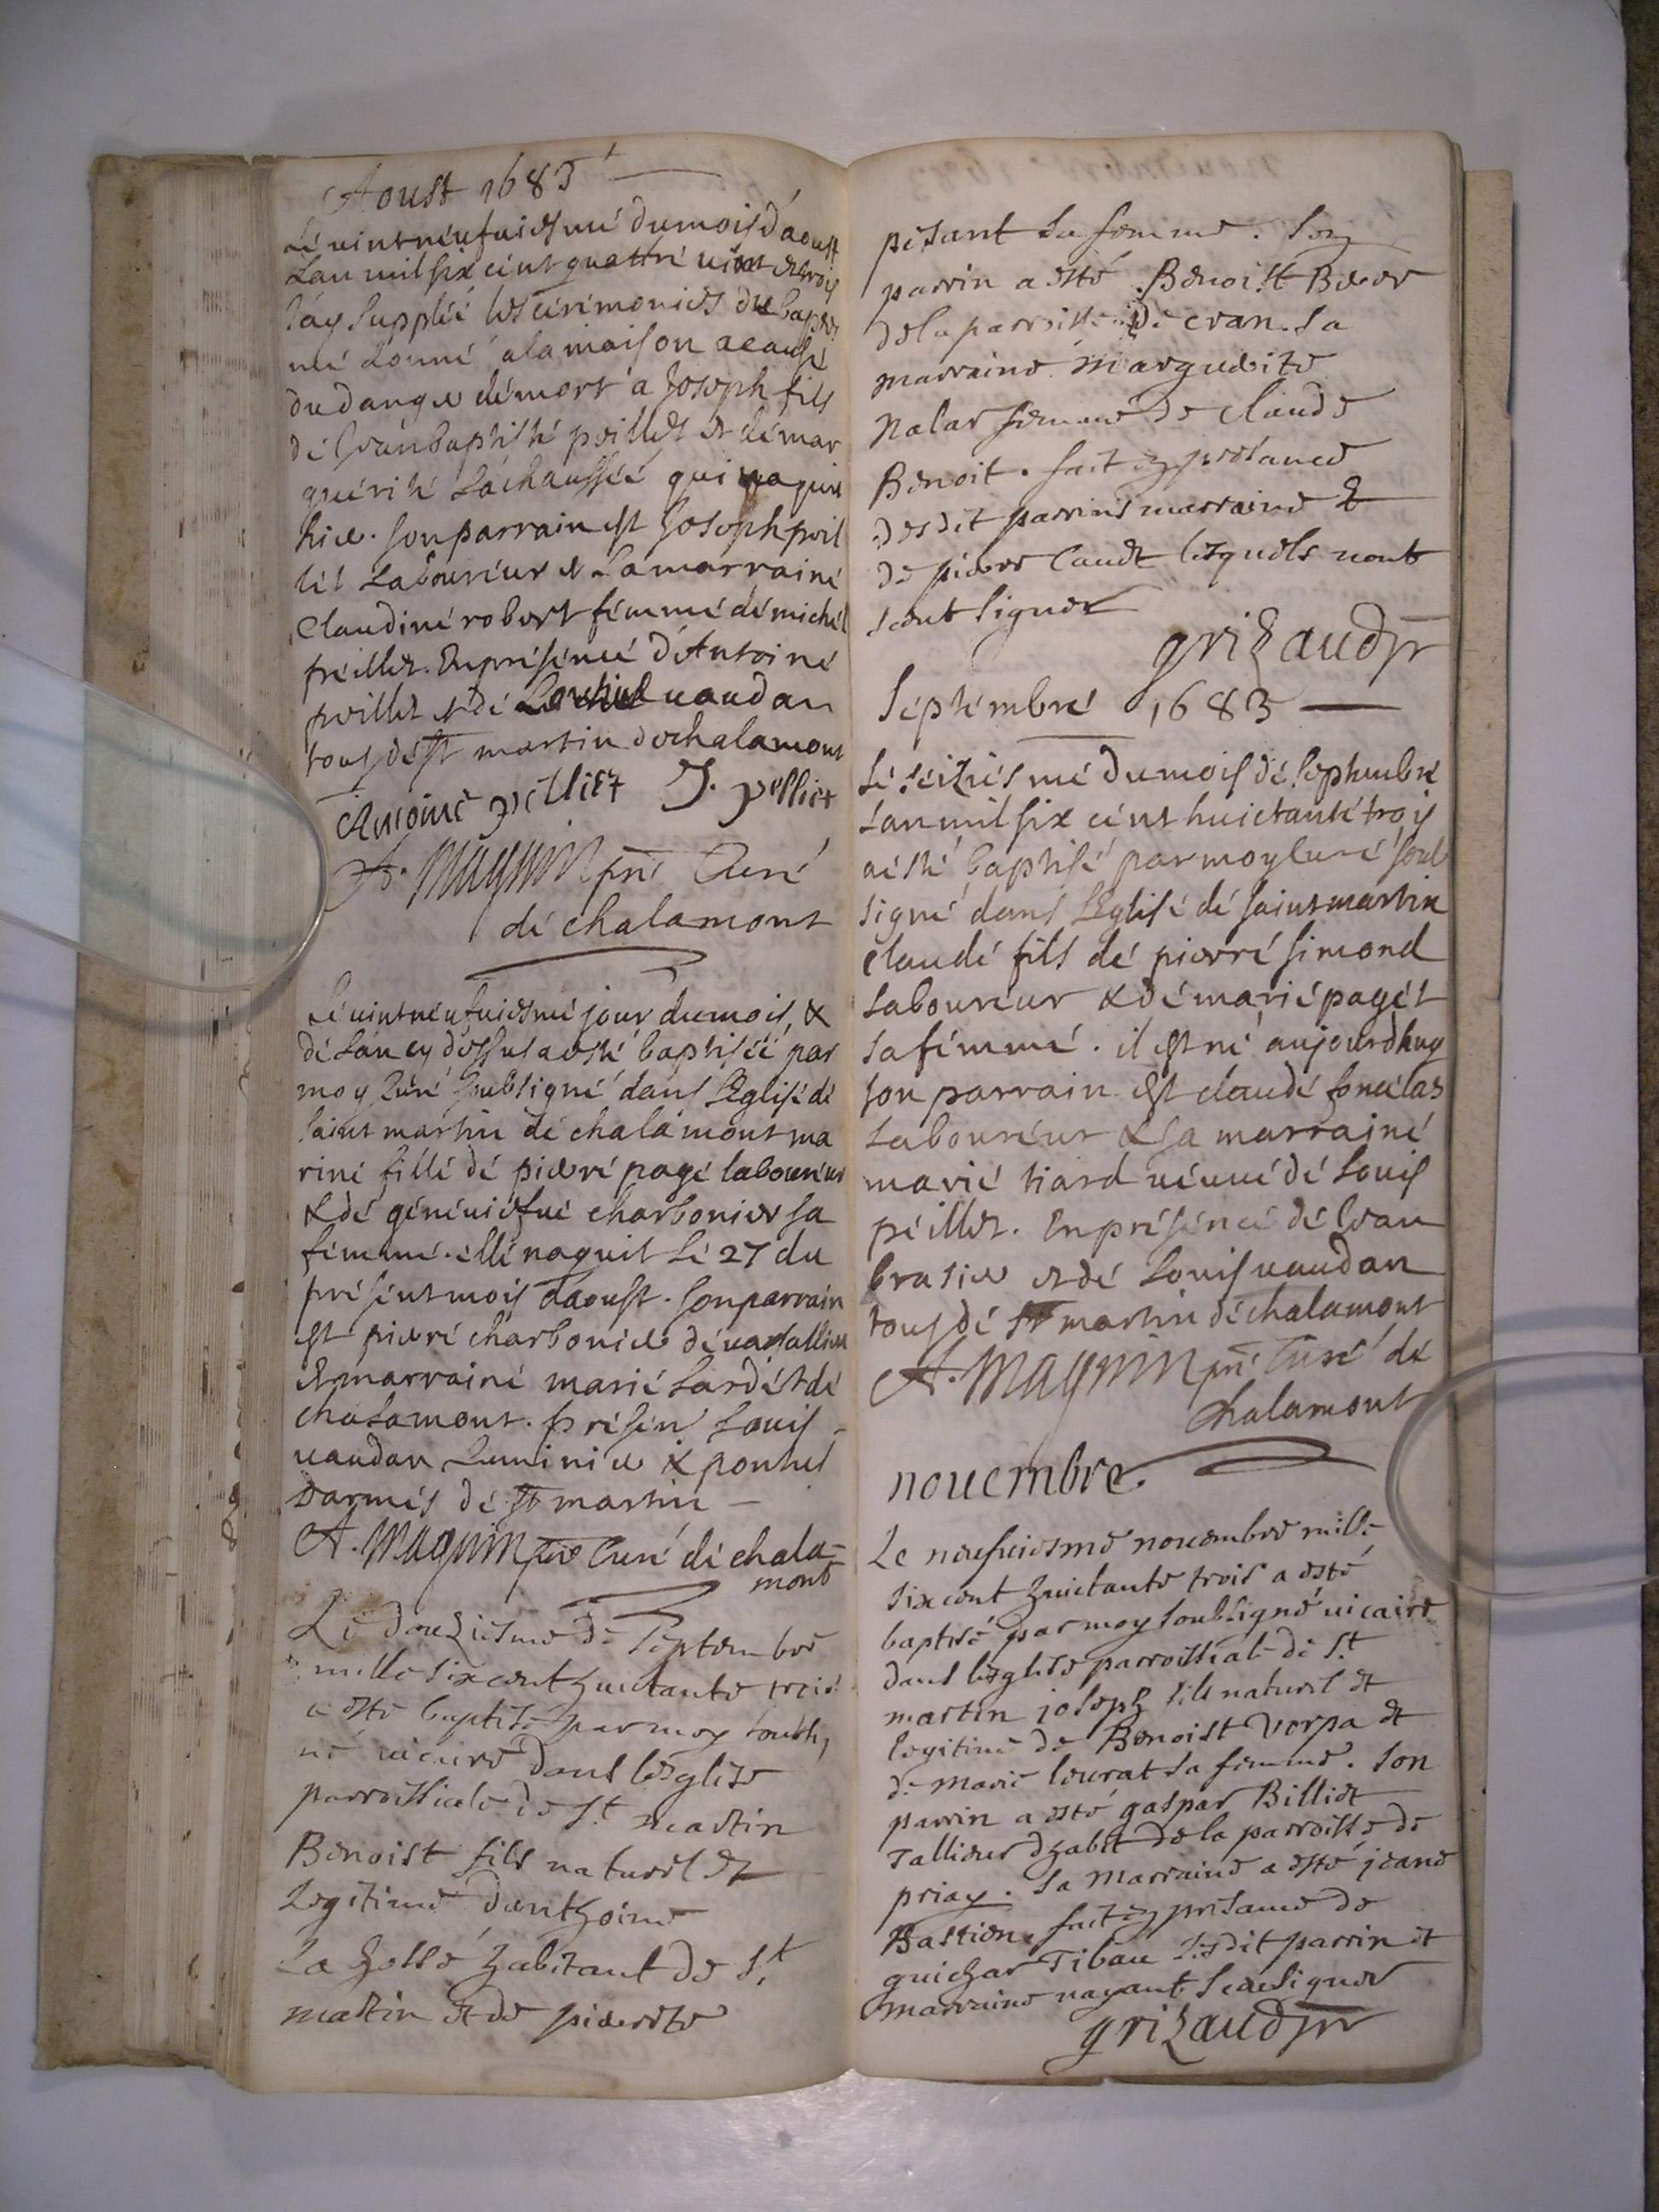 Aoust 1683
Lé vintneufuiesmé du mois d'aoust
Lan mil six cént quattré vint et trois
J'ay supplée les cérémonies du baptes
mé donné a la maison a causé
du danger dé mort a Joseph fils
dé Jean baptisté peillet et dé mar
guérité Lachaussée qui naquit
hier. son parrain est Joseph peil
let Labouréur et La marrainé
Claudiné robert fémmé dé michel
peillet. En présénce d'Antoiné
peillet et dé vaudan
tous dé st martin dechalamont
Antoine pelliet J. pelliet
A. Magnin ptre Curé
dé chalamont
Lé vintneufuiesmé jour du mois, &
dé Lan cy dessus a esté baptisée par
moy Curé soubsigné dans L'Eglisé dé
saint martin dé chalamont ma
riné fillé dé pierré pagé labouréur
& dé généviefué charbonier sa
fémmé. éllé naquit Lé 27 du
présént mois d'aoust. son parrain
est pierré charbonier dé
Et marrainé marié Lardét dé
chalamont. présén Louis
vaudan & pontus
darmés dé st martin
A. Magnin ptre Curé dé chala=
mont
Le douziesme de septembre
mille six cent huictante trois
a esté baptisé par moy soubsig
né vicaire dans l'esglise
parroissiale de St martin
Benoist fils naturel et
legitime d'anthoine
La habitant de St
martin et de pierrete
pesant sa femme. son
parrin a esté Benoist
de la parroisse de cran. sa
marraine marguerite
nalar femme de claude
Benoit. fait en presance
desdit parrins marraine &
de pierre Caudt lesquels nont
sceut signer
grizaud ptr
Séptémbré 1683
Lé séiziésmé du mois dé séptembré
Lan mil six cént huictanté trois
a ésté baptisé par moy Curé soub
signé dans L'Eglisé dé saint martin
claudé fils dé pierré simond
Labouréur & dé marié pagét
sa fémmé. il est né aujourdhuy
son parrain est claudé
Labouréur & sa marrainé
marié tiard véuvé dé Louis
péillet. En présencé dé Jean
brasier et dé Louis vaudan
tous dé st martin dé chalamont
A. Magnin ptre Curé de
chalamont
nouembre.
Le neufuiesme nouembre mille
six cent huictante trois a esté
baptisé par moy soubsigné vicaire
dans lesglise parroissiale de St
martin joseph fils naturel et
legitime de Benoist Verpa et
de marie leurat sa femme. son
parrin a esté gaspar Billiet
Tallieur dhabit de la parroisse de
priay. sa Marraine a esté jeane
Bastien. fait en presance de
guichar Tibau lesdit parrin et
marraine nayant sceu signer
grizaud ptr